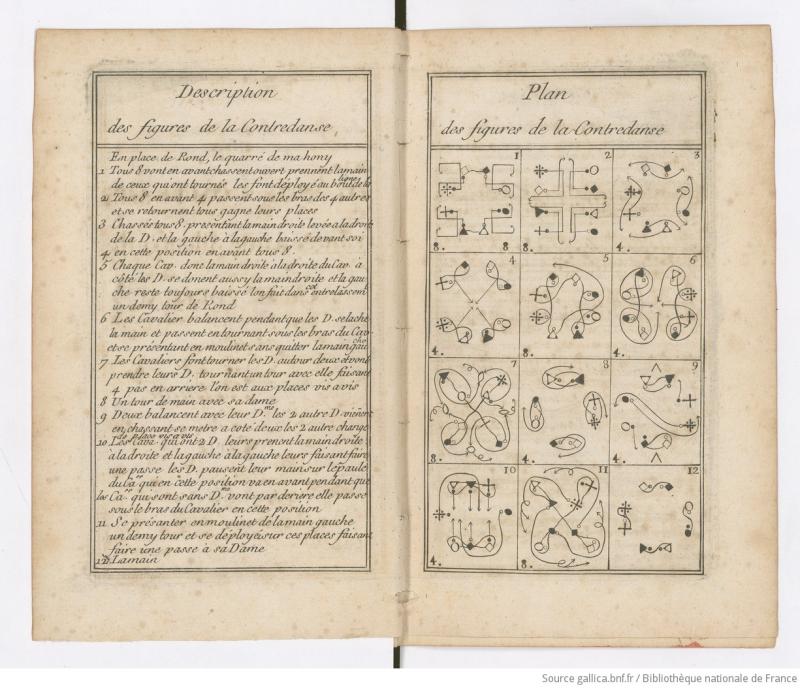 Description
des figures de la Contredanse
En place de Rond, le quarré de mahony
1 Tous 8 vont en avant chassent ouvert prennent la main
de ceux qui ont tournés les font déployé au bout de la
ligne
2 Tous 8 en avant 4 passent sous les bras des 4 autres
et se retournent tous gagne leurs places
3 Chassés tous 8. présentant la main droite levée a la droite
de la D. et la gauche à la gauche baissé devant soi
4 en cette position en avant tous 8.
5 Chaque Cav. dont la main droite à la droite du Cav. à
côté les D. se donent aussy la main droite et la gau
che reste toujours baissé l'on fait dans cet entrelassemt
un demy tour de Rond
6 Les Cavalier balancent pendant que les D. se lache
la main et passent en tournant sous les bras du Cav
et se présentant en moulinet sans quitter la main gau
che
7 Les Cavaliers font tourner les D. autour deux et vont
prendre leurs D. tournant un tour avec elle faisant
4 pas en arriere l'on est aux places vis a vis
8 Un tour de main avec sa dame
9 Deux balancent avec leur D.mes les 2 autre D. vienent
en chassant se metre a coté deux les 2 autre change
de place vis a vis
10 Les Cava. qui ont 2 D. leurs prenent la main droite
à la droite et la gauche à la gauche leurs faisant faire
une passe les D. pausent leur main sur l'epaule
du Ca.er qui en cette position va en avant pendant que
les Ca.er qui sont sans D.mes vont par deriere elle passe
sous le bras du Cavalier en cette position
11 Se présanter en moulinet de la main gauche
un demy tour et se déployer sur ces places faisant
faire une passe à sa Dame
12 La main
Plan
des figures de la Contredanse
1
8. 8
2
8.
3
4.
4
4.
5
8.
6
4.
7
8.
8
4.
9
4.
10
4.
11
8.
12
Source gallica.bnf.fr / Bibliothèque nationale de France